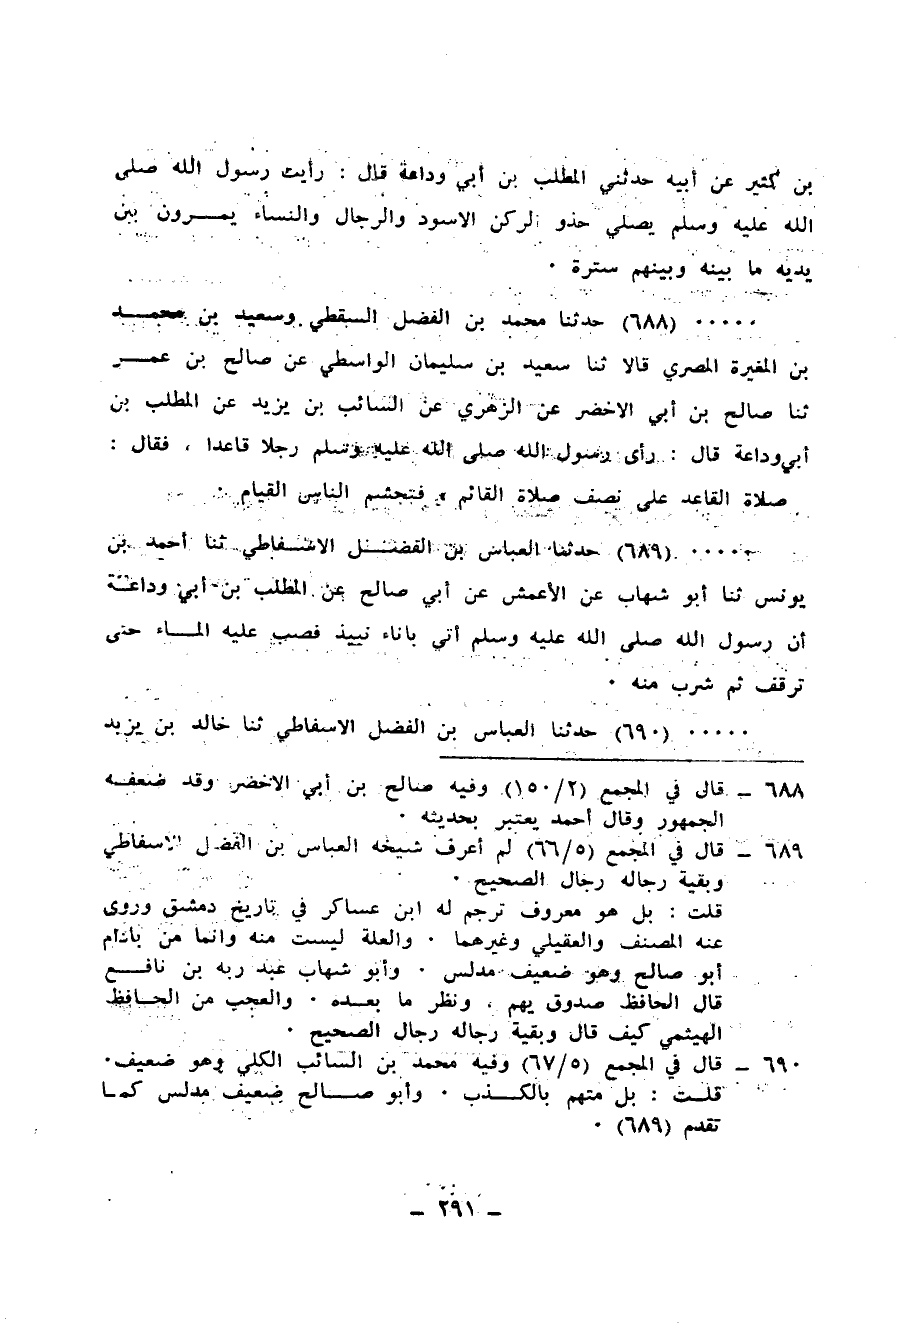 بن كثير عن أبيه حدثني المطلب بن أبي وداعة قال : رأيت رسول الله صلى
الله عليه وسلم يصلي حذو الركن الاسود والرجال والنساء يمـــرون بين
يديه ما بينه وبينهم سترة ٠
٠٠٠٠٠ (٦٨٨) حدثنا محمد بن الفضل السقطي وسعيد بن محمـــد
بن المغيرة المصري قالا ثنا سعيد بن سليمان الواسطي عن صالح بن عمـــر
ثنا صالح بن أبي الاخضر عن الزهري عن السائب بن يزيد عن المطلب بن
أبي وداعة قال : رأى رسول الله صلى الله عليه وسلم رجلا قاعدا ، فقال :
صلاة القاعد على نصف صلاة القائم » فتجشم الناس القيام ٠
٠٠٠٠٠ (٦٨٩) حدثنا العباس بن الفضـــل الاسـفاطي ثنا أحمد بن
يونس ثنا أبو شهاب عن الأعمش عن أبي صالح عن المطلب بن أبي وداعـة
أن رسول الله صلى الله عليه وسلم أتي باناء نبيذ فصب عليه المـــاء حتى
ترقف ثم شرب منه ٠
٠٠٠٠٠ (٦٩٠) حدثنا العباس بن الفضل الاسفاطي ثنا خالد بن يزيد
٦٨٨ ـ قال في المجمع (١٥٠/٢) وفيه صالح بن أبي الاخضر وقد ضعفـه
الجمهور وقال أحمد يعتبر بحديثه ٠
٦٨٩ ـ قال في المجمع (٦٦/٥) لم أعرف شيخه العباس بن الفضل الاسفاطي
وبقية رجاله رجال الصحيح ٠
قلت : بل هو معروف ترجم له ابن عساكر في تاريخ دمشق وروى
عنه المصنف والعقيلي وغيرهما ٠ والعلة ليست منه وانما من باذام
أبو صالح وهو ضعيف مدلس ٠ وأبو شهاب عبد ربه بن نافـــع
قال الحافظ صدوق يهم ، ونظر ما بعـده ٠ والعجب من الحـافظ
الهيثمي كيف قال وبقية رجاله رجال الصحيح ٠
٦٩٠ ـ قال في المجمع (٦٧/٥) وفيه محمد بن السائب الكلبي وهو ضعيف٠
قلـــت : بل متهم بالكـــذب ٠ وأبو صـــالح ضعيف مدلس كمـا
تقدم (٦٨٩) ٠
ـ ٢٩١ ـ